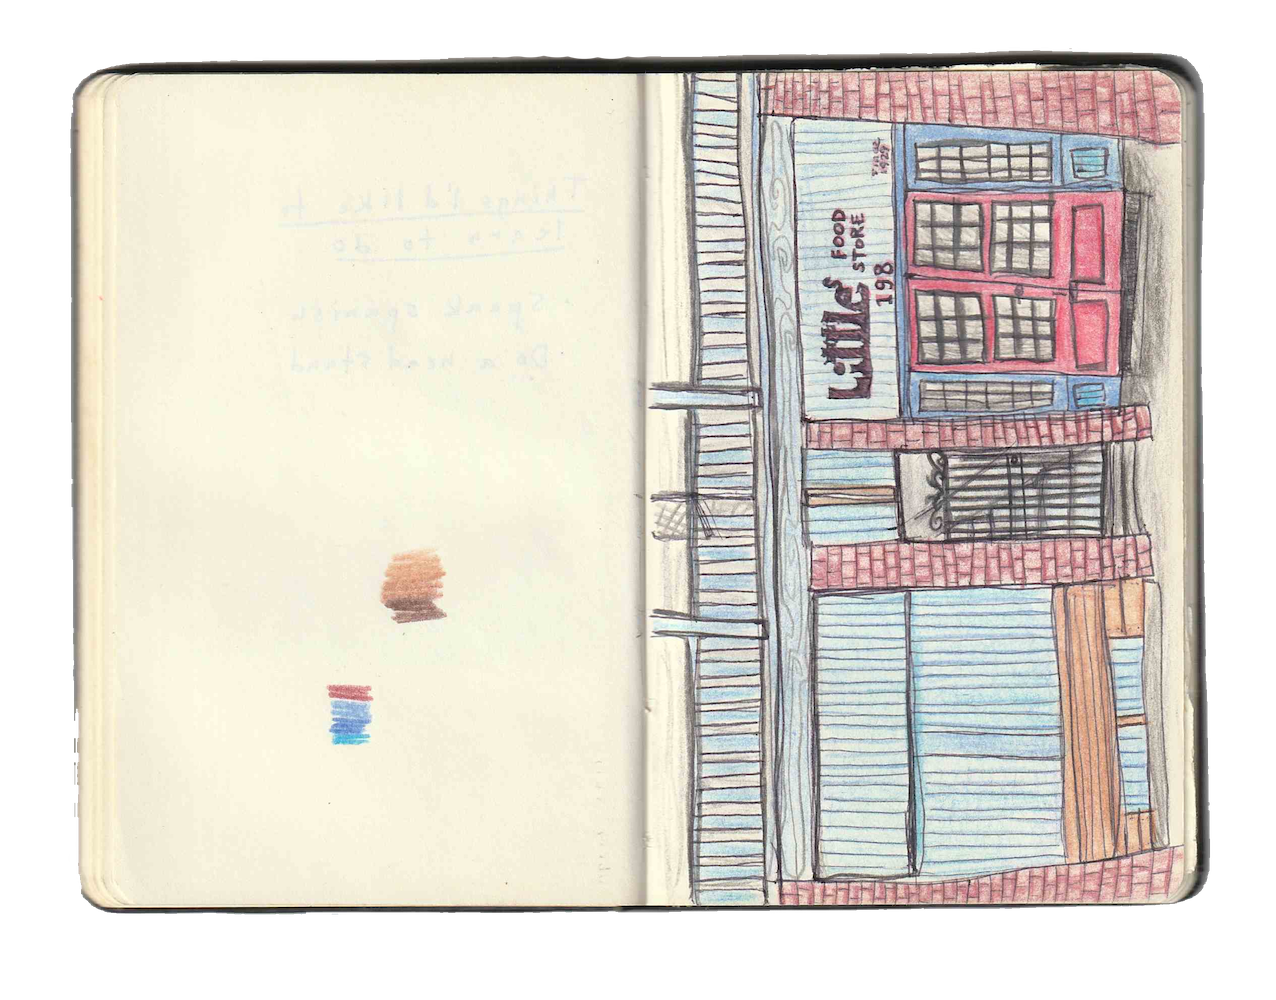 Things I'd like to
learn to do
· Speak spanish
· Do a head stand
Little's FOOD
STORE
198
SINCE
1929